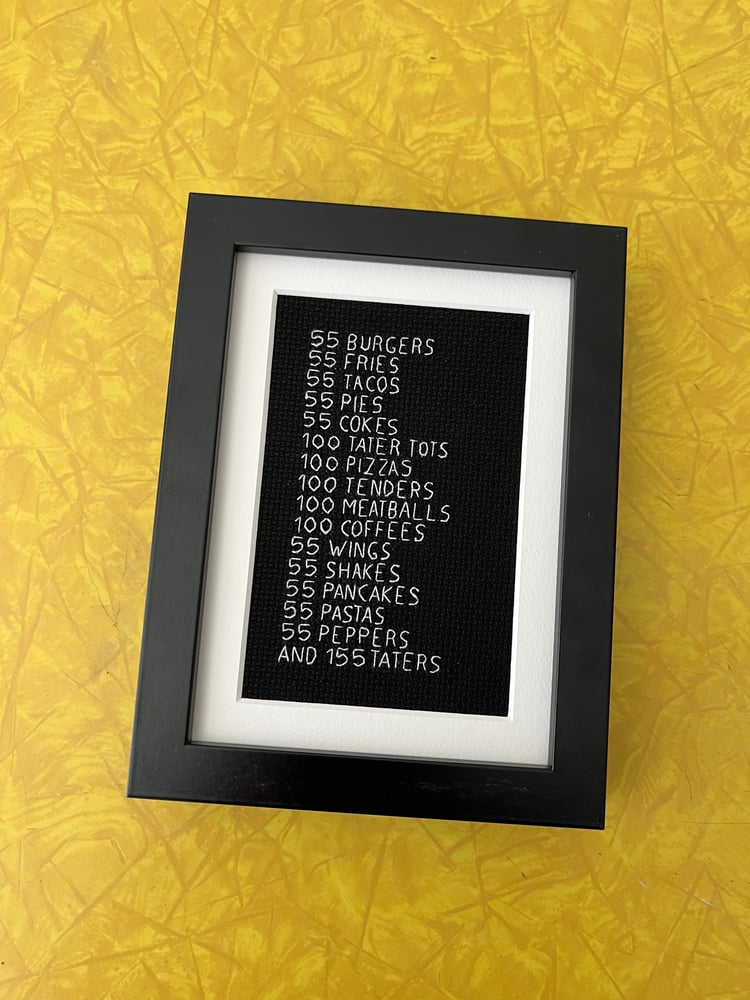 55 BURGERS
55 FRIES
55 TACOS
55 PIES
55 COKES
100 TATER TOTS
100 PIZZAS
100 TENDERS
100 MEATBALLS
100 COFFEES
55 WINGS
55 SHAKES
55 PANCAKES
55 PASTAS
55 PEPPERS
AND 155 TATERS